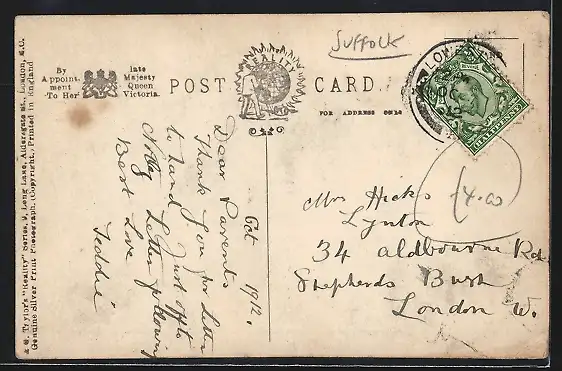 Suffolk
By
Appoint.
ment
To Her
late
Majesty
Queen
Victoria.
POST
REALITY
CARD.
FOR ADDRESS ONLY
LON
OC
12
HALFPENNY
(4.00
Oct 1912.
Dear Parents
Thank you for Letter
to hand Just off to
Letter following
Best Love
Teddie
Mrs Hicks
Lynton
34 Aldbourne Rd
Shepherds Bush
London W.
A. & G. Taylor's "Reality" Series, 9, Long Lane, Aldersgate st., London, E.C.
Genuine Silver Print Photograph. (Copyright). Printed in England